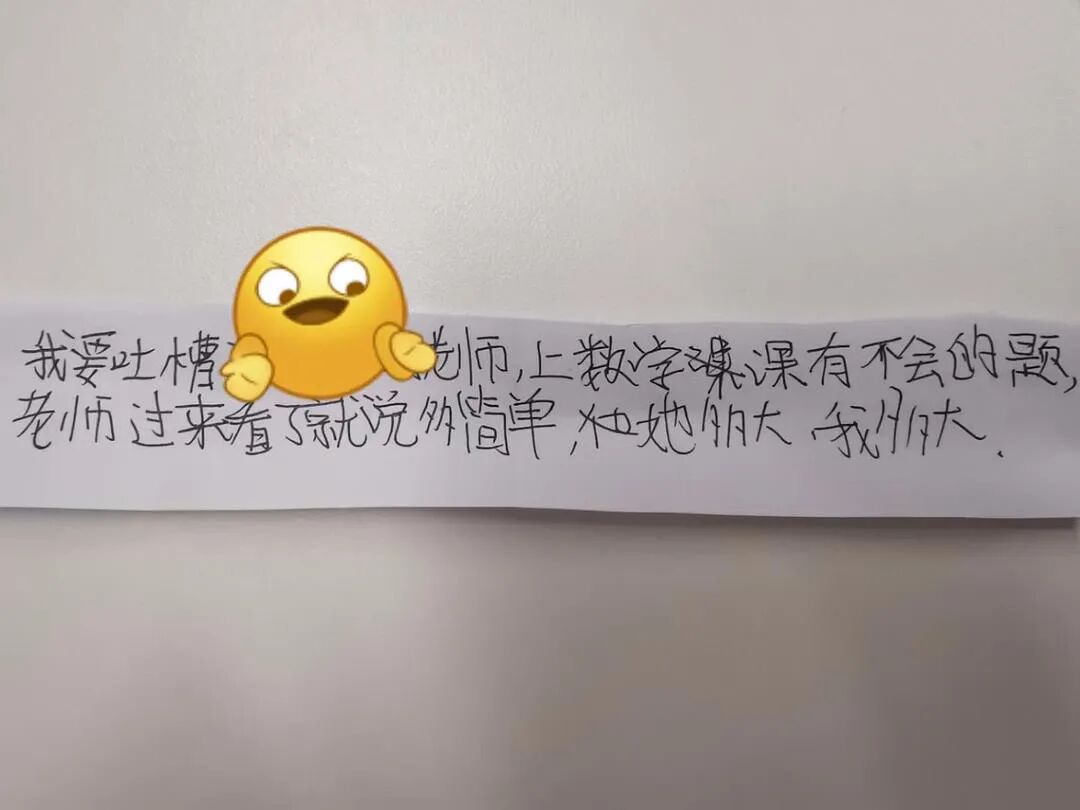 我要吐槽老师,上数学课有不会的题,
老师过来看了就说多简单,她多大 我多大.